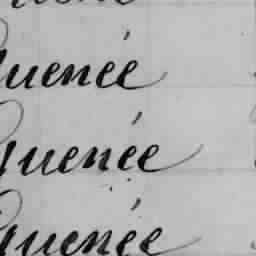 quenée
quenée
quenée